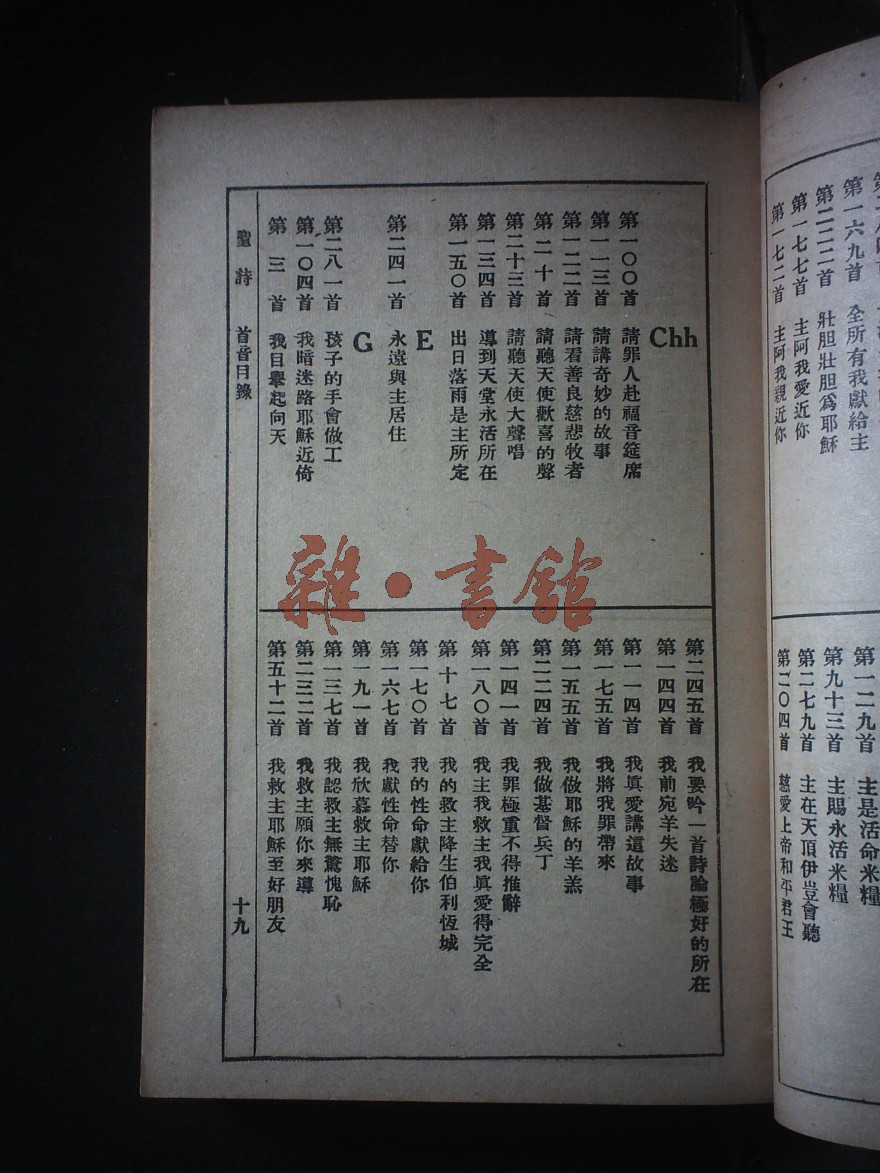 Chh
第一〇〇首 請罪人赴福音筵席
第一一三首 請講奇妙的故事
第一二二首 請看善良慈悲牧者
第二十首 請聽天使歡喜的聲
第二十三首 請聽天使大聲唱
第一三四首 導到天堂永活所在
第一五〇首 出日落雨是主所定
E
第二四一首 永遠與主居住
G
第二八一首 孩子的手會做工
第一〇四首 我暗迷路耶穌近倚
第三首 我目舉起向天
第二四五首 我要吟一首詩論極好的所在
第一四四首 我前宛羊失迷
第一一四首 我眞愛講這故事
第一七五首 我將我罪帶來
第一五五首 我做耶穌的羊羔
第二二四首 我做基督兵丁
第一四一首 我罪極重不得推辭
第一八〇首 我主我救主我眞愛得完全
第十七首 我的救主降生伯利恆城
第一七〇首 我的性命獻給你
第一六七首 我獻性命替你
第一九一首 我欣慕救主耶穌
第一三七首 我認救主無驚愧恥
第二三二首 我救主願你來導
第五十二首 我救主耶穌至好朋友
聖詩 首音目錄 十九
第一六九首 全所有我獻給主
第二二二首 壯胆壯胆爲耶穌
第一七七首 主阿我愛近你
第一七二首 主阿我親近你
第一二九首 主是活命米糧
第九十三首 主賜永活米糧
第二七九首 主在天頂伊豈會聽
第二〇四首 慈愛上帝和平君王
雜·書館